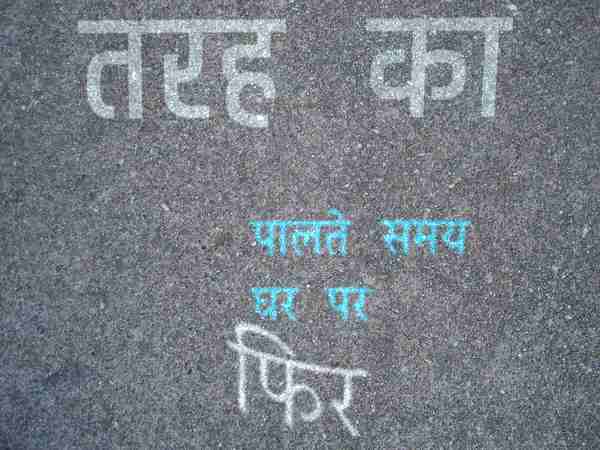 तरह का
पालते समय
घर पर
फिर